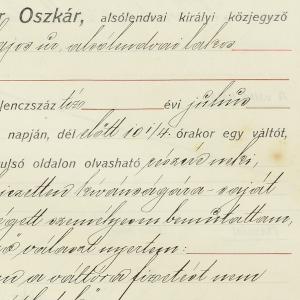 Oszkár, alsólendvai királyi közjegyző
úr, alsólendvai lakos
lenczszáz tíz évi július
napján, dél előtt 10 1/4 órakor egy váltót,
ulsó oldalon olvasható
kívánságára saját
személyesen bemutattam,
választ nyertem:
a váltóra fizetést nem